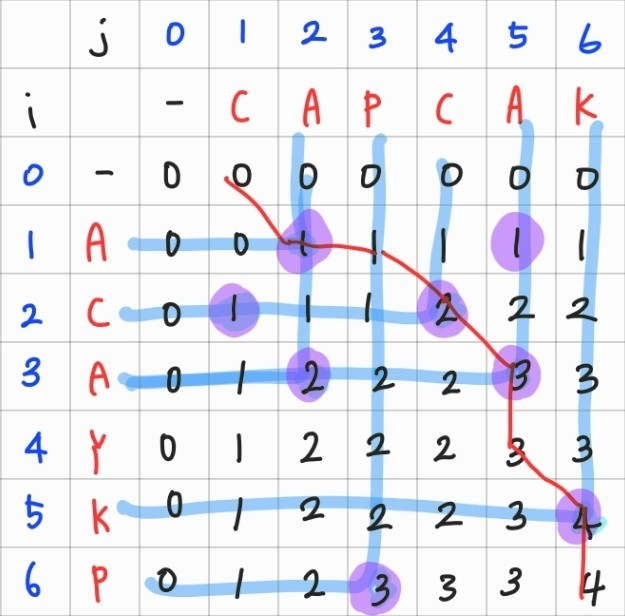 j 0 1 2 3 4 5 6
i - C A P C A K
0 - 0 0 0 0 0 0 0
1 A 0 0 1 1 1 1 1
2 C 0 1 1 1 2 2 2
3 A 0 1 2 2 2 3 3
4 Y 0 1 2 2 2 3 3
5 K 0 1 2 2 2 3 4
6 P 0 1 2 3 3 3 4